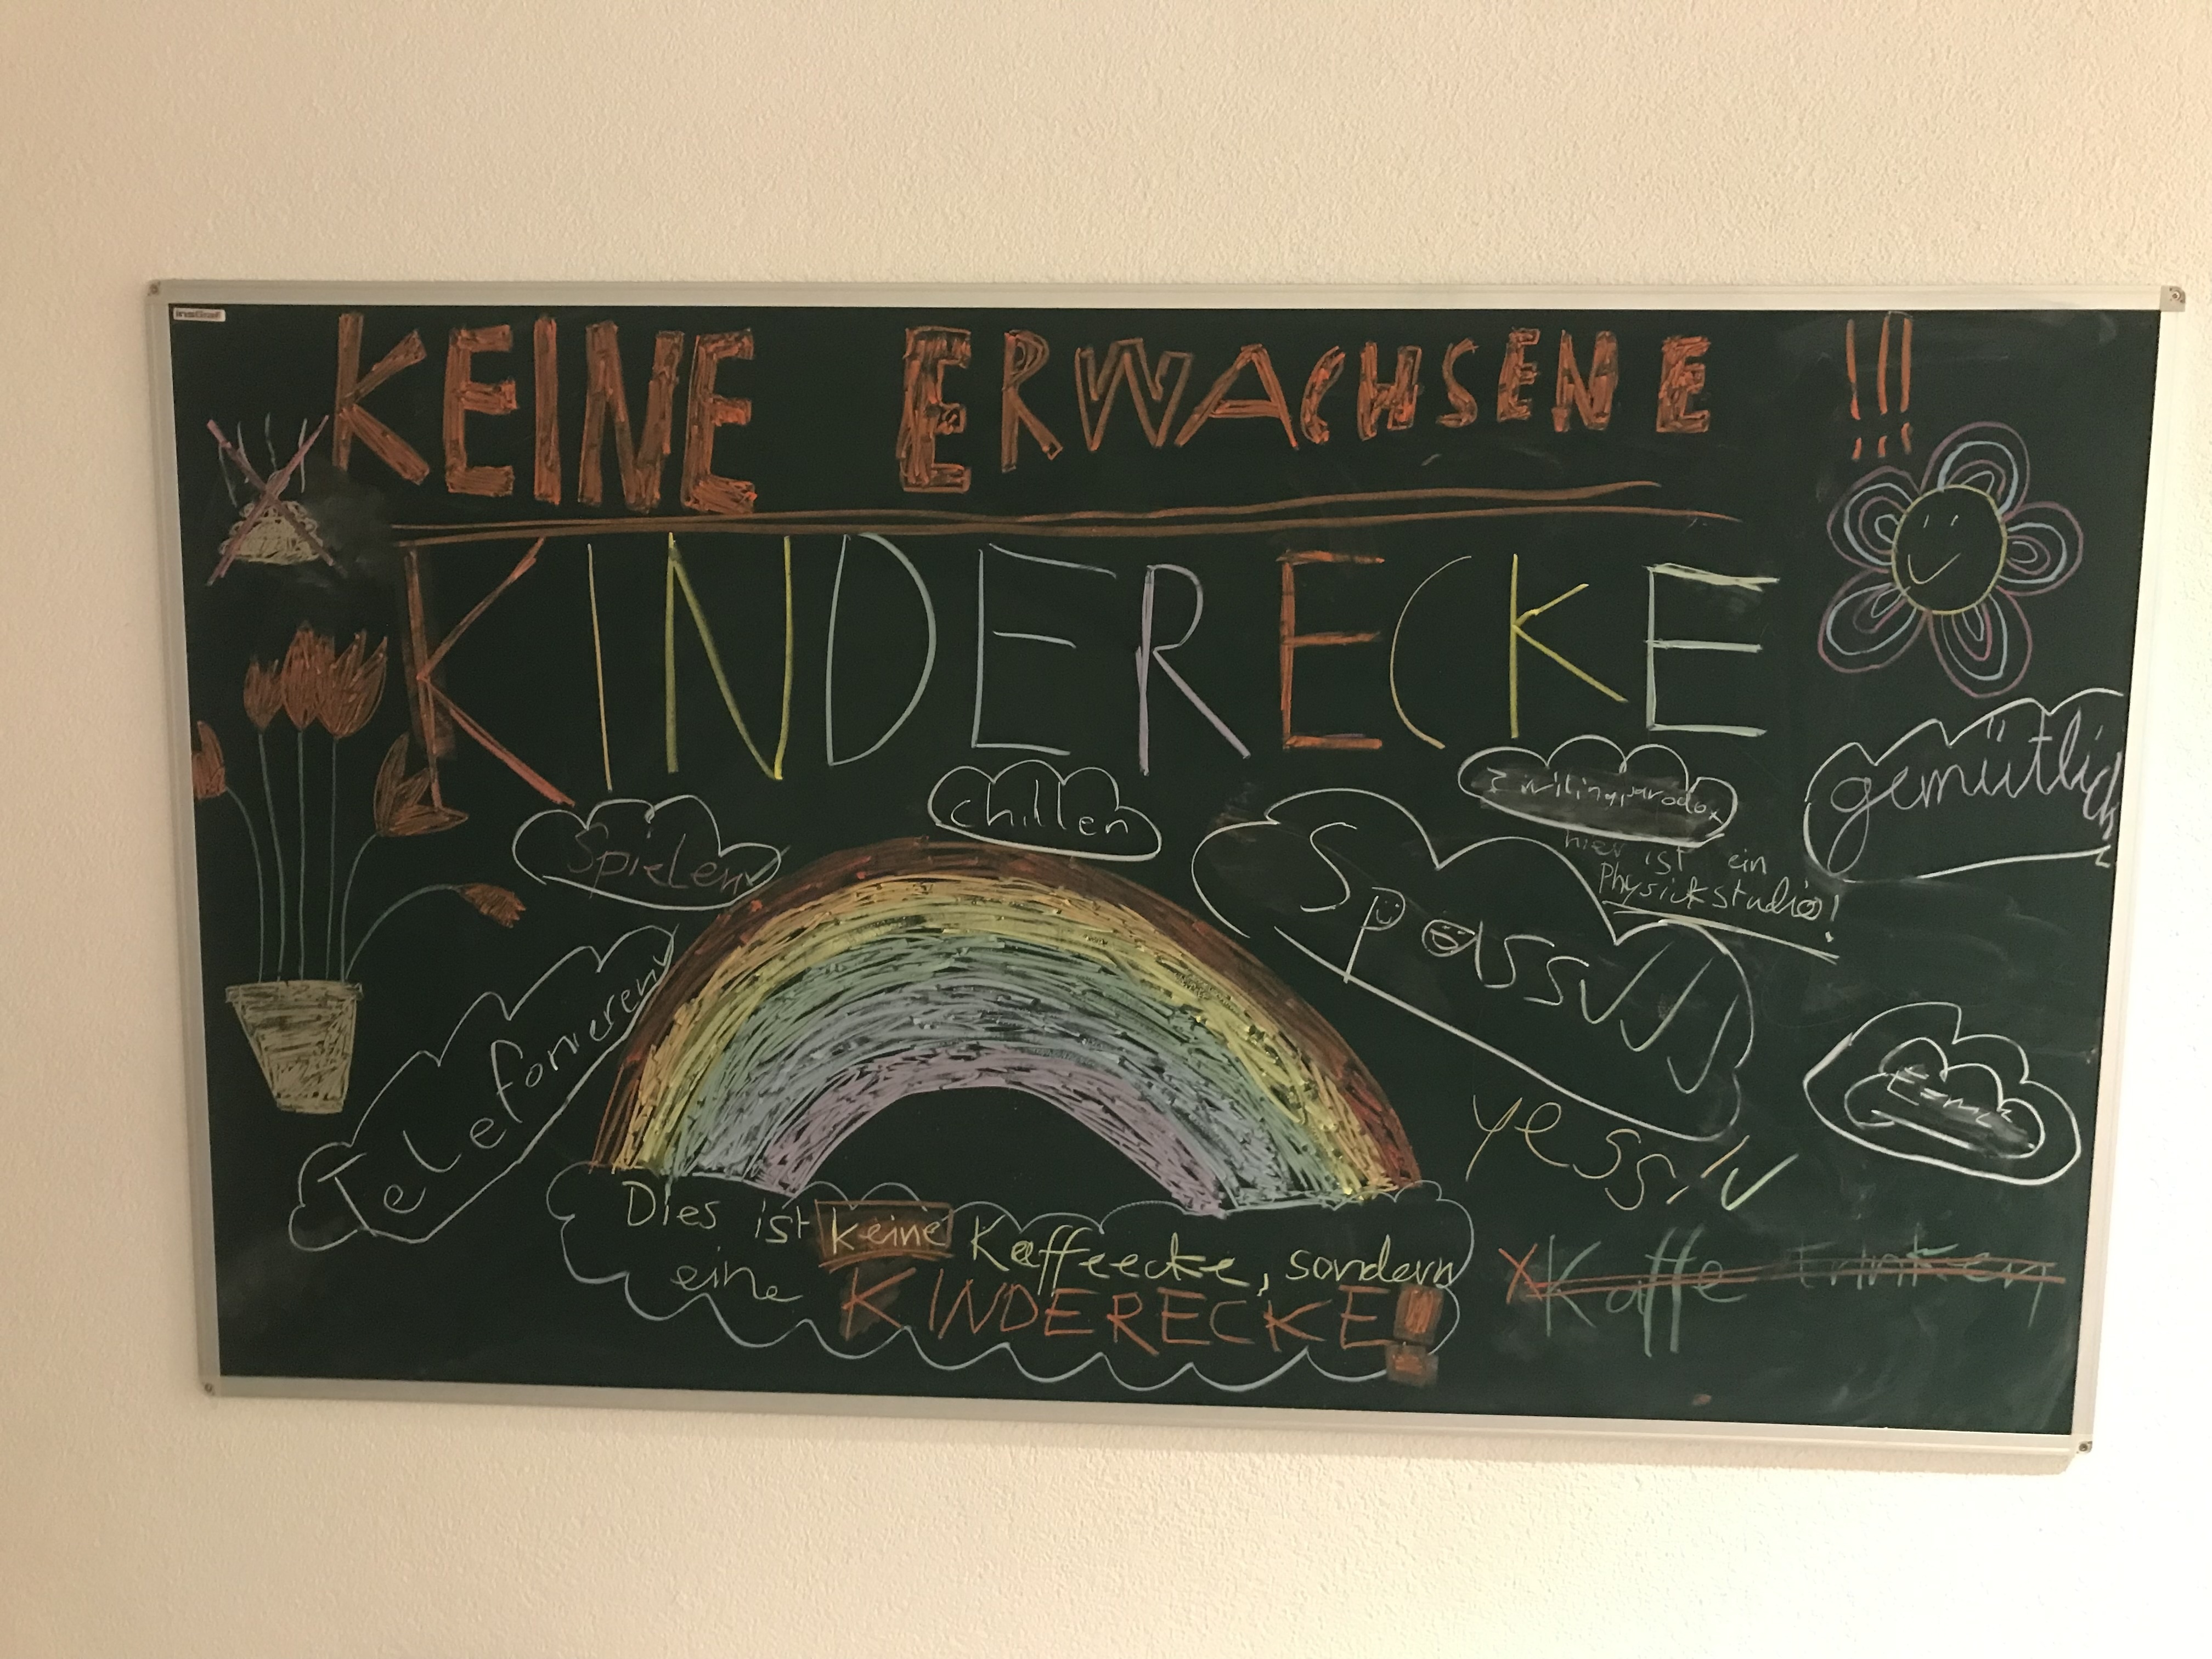 KEINE ERWACHSENE !!!
KINDERECKE
Spielen
chillen
Zwilingparadox
gemütlich
hier ist ein
Physickstudio!
Spass!!!
Telefonieren
yess!!
Dies ist keine Kaffeecke, sondern
eine KINDERECKE!
Kaffe trinken